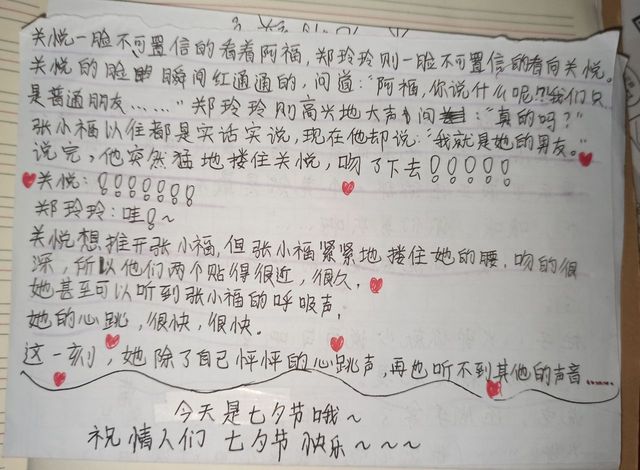 关悦一脸不可置信的看着阿福，郑玲玲则一脸不可置信的看向关悦。
关悦的脸瞬间红通通的，问道：“阿福，你说什么呢？！我们只
是普通朋友……”郑玲玲则高兴地大声问：“真的吗？”
张小福以往都是实话实说，现在他却说：“我就是她的男友。”
说完，他突然猛地搂住关悦，吻了下去！！！！！
关悦：！！！！！！！
郑玲玲：哇！～
关悦想推开张小福，但张小福紧紧地搂住她的腰，吻的很
深，所以他们两个贴得很近，很久，
她甚至可以听到张小福的呼吸声，
她的心跳，很快，很快。
这一刻，她除了自己怦怦的心跳声，再也听不到其他的声音……
今天是七夕节哦～
祝情人们 七夕节 快乐～～～